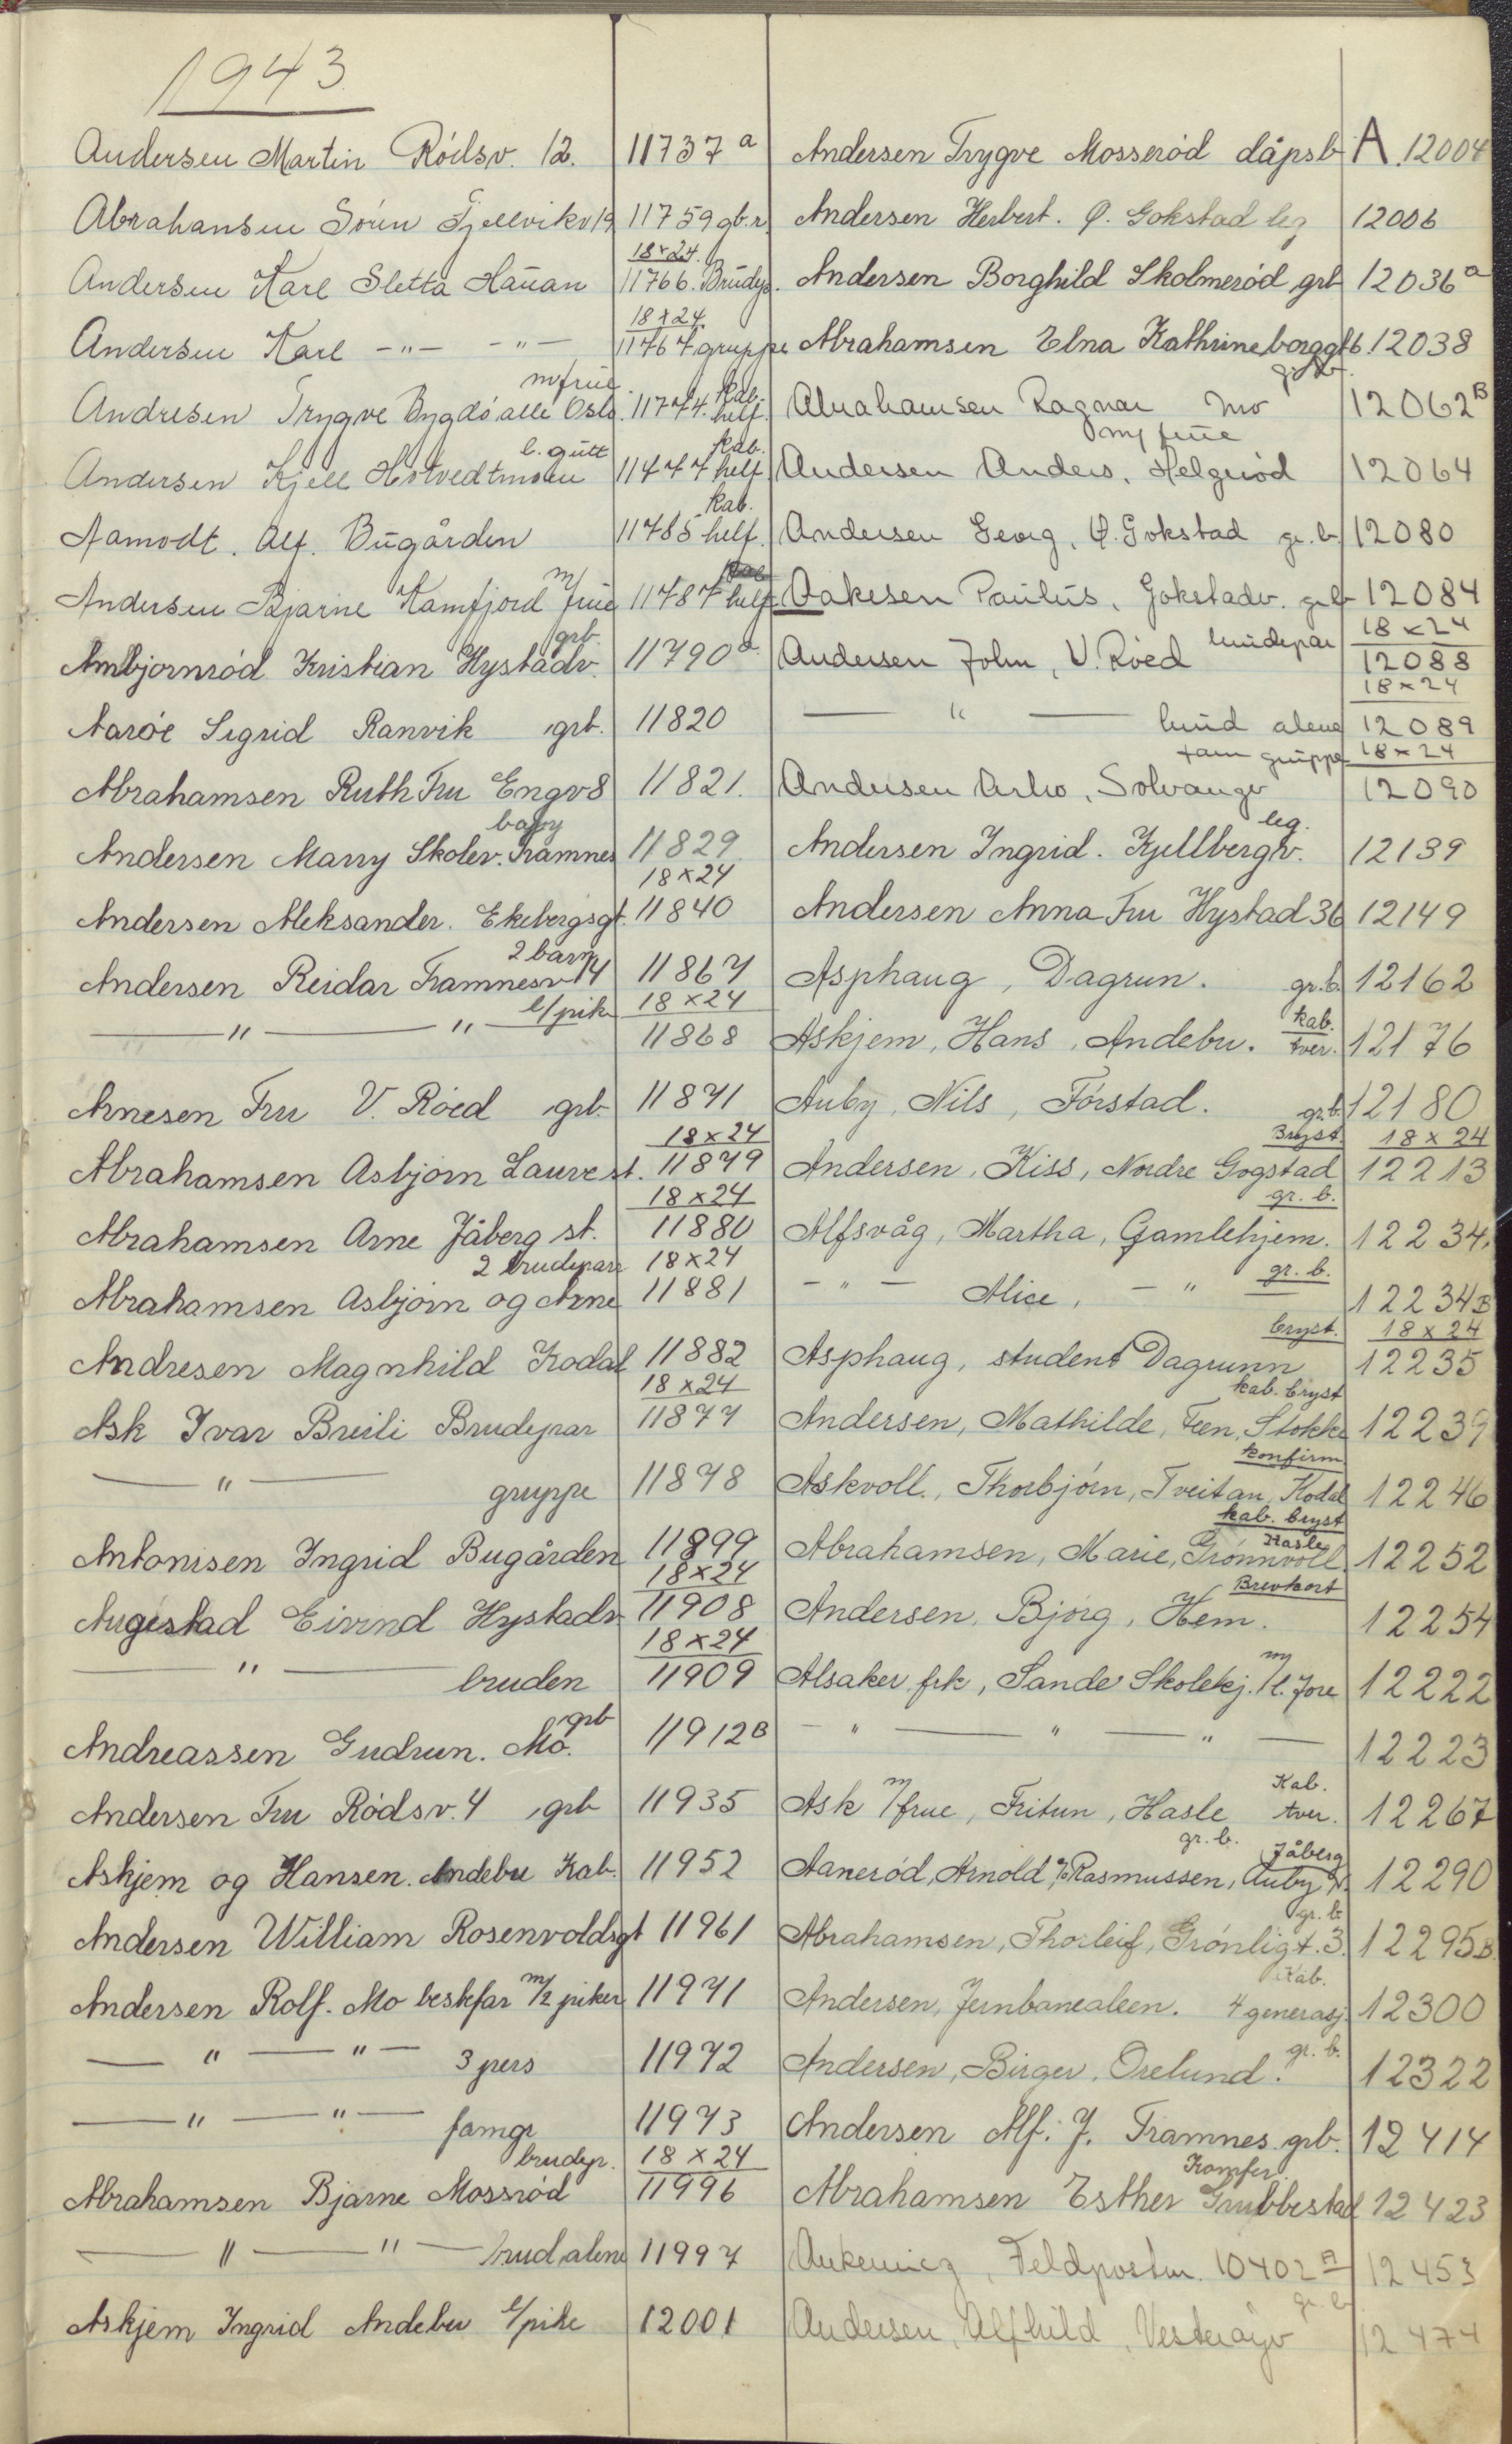 1943
A
Andersen Martin Rödsv. 12. 11737 a
Abrahansen Sörén Fjellvikv 19 11759 gb.r.
18x24.
Andersen Karl Sletta Haŭan 11766. Brudep.
18x24
Andersen Karl -"- -"- 11767 gruppe
m/frue kab.
Andresen Trygve Bygdö alle Oslo. 11774. helf.
l. gutt kab.
Andersen Kjell Hotvedtmoen 11777 helf.
kab.
Aamodt. Alf. Bŭgården 11785 helf.
m/
Andersen Bjarne Kamfjord frue 11787 helf
grb.
Ambjornröd Kristian Hystadv. 11790 a
Aaröe Sigrid Ranvik grb. 11820
Abrahamsen Ruth Fru Engv 8 11821.
baby
Andersen Marry Skolev. Framnes 11829
18x24
Andersen Aleksander. Ekebergsgt. 11840
2 barn
Andersen Reidar Framnesv 14 11867
l/pike 18x24
—"— " — 11868
Arnesen Fru V. Röed grb. 11871
18x24
Abrahamsen Asbjörn Lauve st. 11879
18x24
Abrahamsen Arne Jåberg st. 11880
2 brudepar 18x24
Abrahamsen Asbjörn og Arne 11881
Andresen Magnhild Kodal 11882
18x24
Ask Ivar Breili Brudepar 11877
—"— gruppe 11878
Antonisen Ingrid Bugården 11899
18x24
Augestad Eivind Hystadv. 11908
18x24
—"— bruden 11909
grb
Andreassen Gudrun. Mo. 11912 B
Andersen Fru Rödsv. 4 grb 11935
Askjem og Hansen. Andebu Kab. 11952
Andersen William Rosenvoldsgt 11961
Andersen Rolf. Mo beskfar m/2 piker 11971
—"—"— 3 pers 11972
—"—"— famgr 11973
brudep. 18x24
Abrahamsen Bjarne Mossröd 11996
—"—"— brud alene 11997
Askjem Ingrid Andebu l/pike 12001
Andersen Trygve Mosseröd dåpsb 12004
Andersen Herbert. Ø. Gokstad leg 12006
Andersen Borghild Skolmeröd grb 12036 a
Abrahamsen Elna Kathrineborggt 6. 12038
grb.
Abrahamsen Ragnar Mo 12062 B
m/ frue
Andersen Anders, Helgeröd 12064
Andersen Georg, Ø. Gokstad gr. b. 12080
Aakesen Paulŭs, Gokstadv. grb 12084
18x24
Andersen John, V. Röed brudepar 12088
18x24
—"— brud alene 12089
fam grŭppe 18x24
Andersen Arho, Solvangv 12090
leg.
Andersen Ingrid. Kjellbergv. 12139
Andersen Anna Fru Hystad 36 12149
Asphaug, Dagrun. gr. b. 12162
kab.
Askjem, Hans, Andebu. tver. 12176
Auby, Nils, Förstad. gr.b. 12180
Bryst. 18x24
Andersen, Kiss, Nordre Gogstad 12213
gr. b.
Alfsvåg, Martha, Gamlehjem. 12234.
gr. b.
-"- Alice, -" 12234 B
bryst. 18x24
Asphaug, student Dagrunn 12235
kab. bryst
Andersen, Mathilde, Feen, Stokke 12239
konfirm
Askvoll, Thorbjörn, Tveitan, Kodal 12246
kab. bryst
Hasle
Abrahamsen, Marie, Grönnvoll 12252
Brevkort
Andersen, Bjørg, Hem. 12254
Alsaker frk, Sande Skolekj. m/l. Tore 12222
-"—"—"— 12223
Kab.
Ask m/frue, Fritun, Hasle tver. 12267
gr. b. Jåberg
Aaneröd, Arnold, % Rasmussen, Auby N. 12290
gr. b
Abrahamsen, Thorleif, Grönligt. 3. 12295 B.
Kab.
Andersen, Jernbanealeen. 4 generasj. 12300
gr. b.
Andersen, Birger, Orelund. 12322
Andersen Alf. J. Framnes grb. 12414
Komfer.
Abrahamsen Esther Grubbestad 12423
Feldpostnr. 10402 A 12453
gr. b
Andersen, Alfhild, Vesteröyv 12474